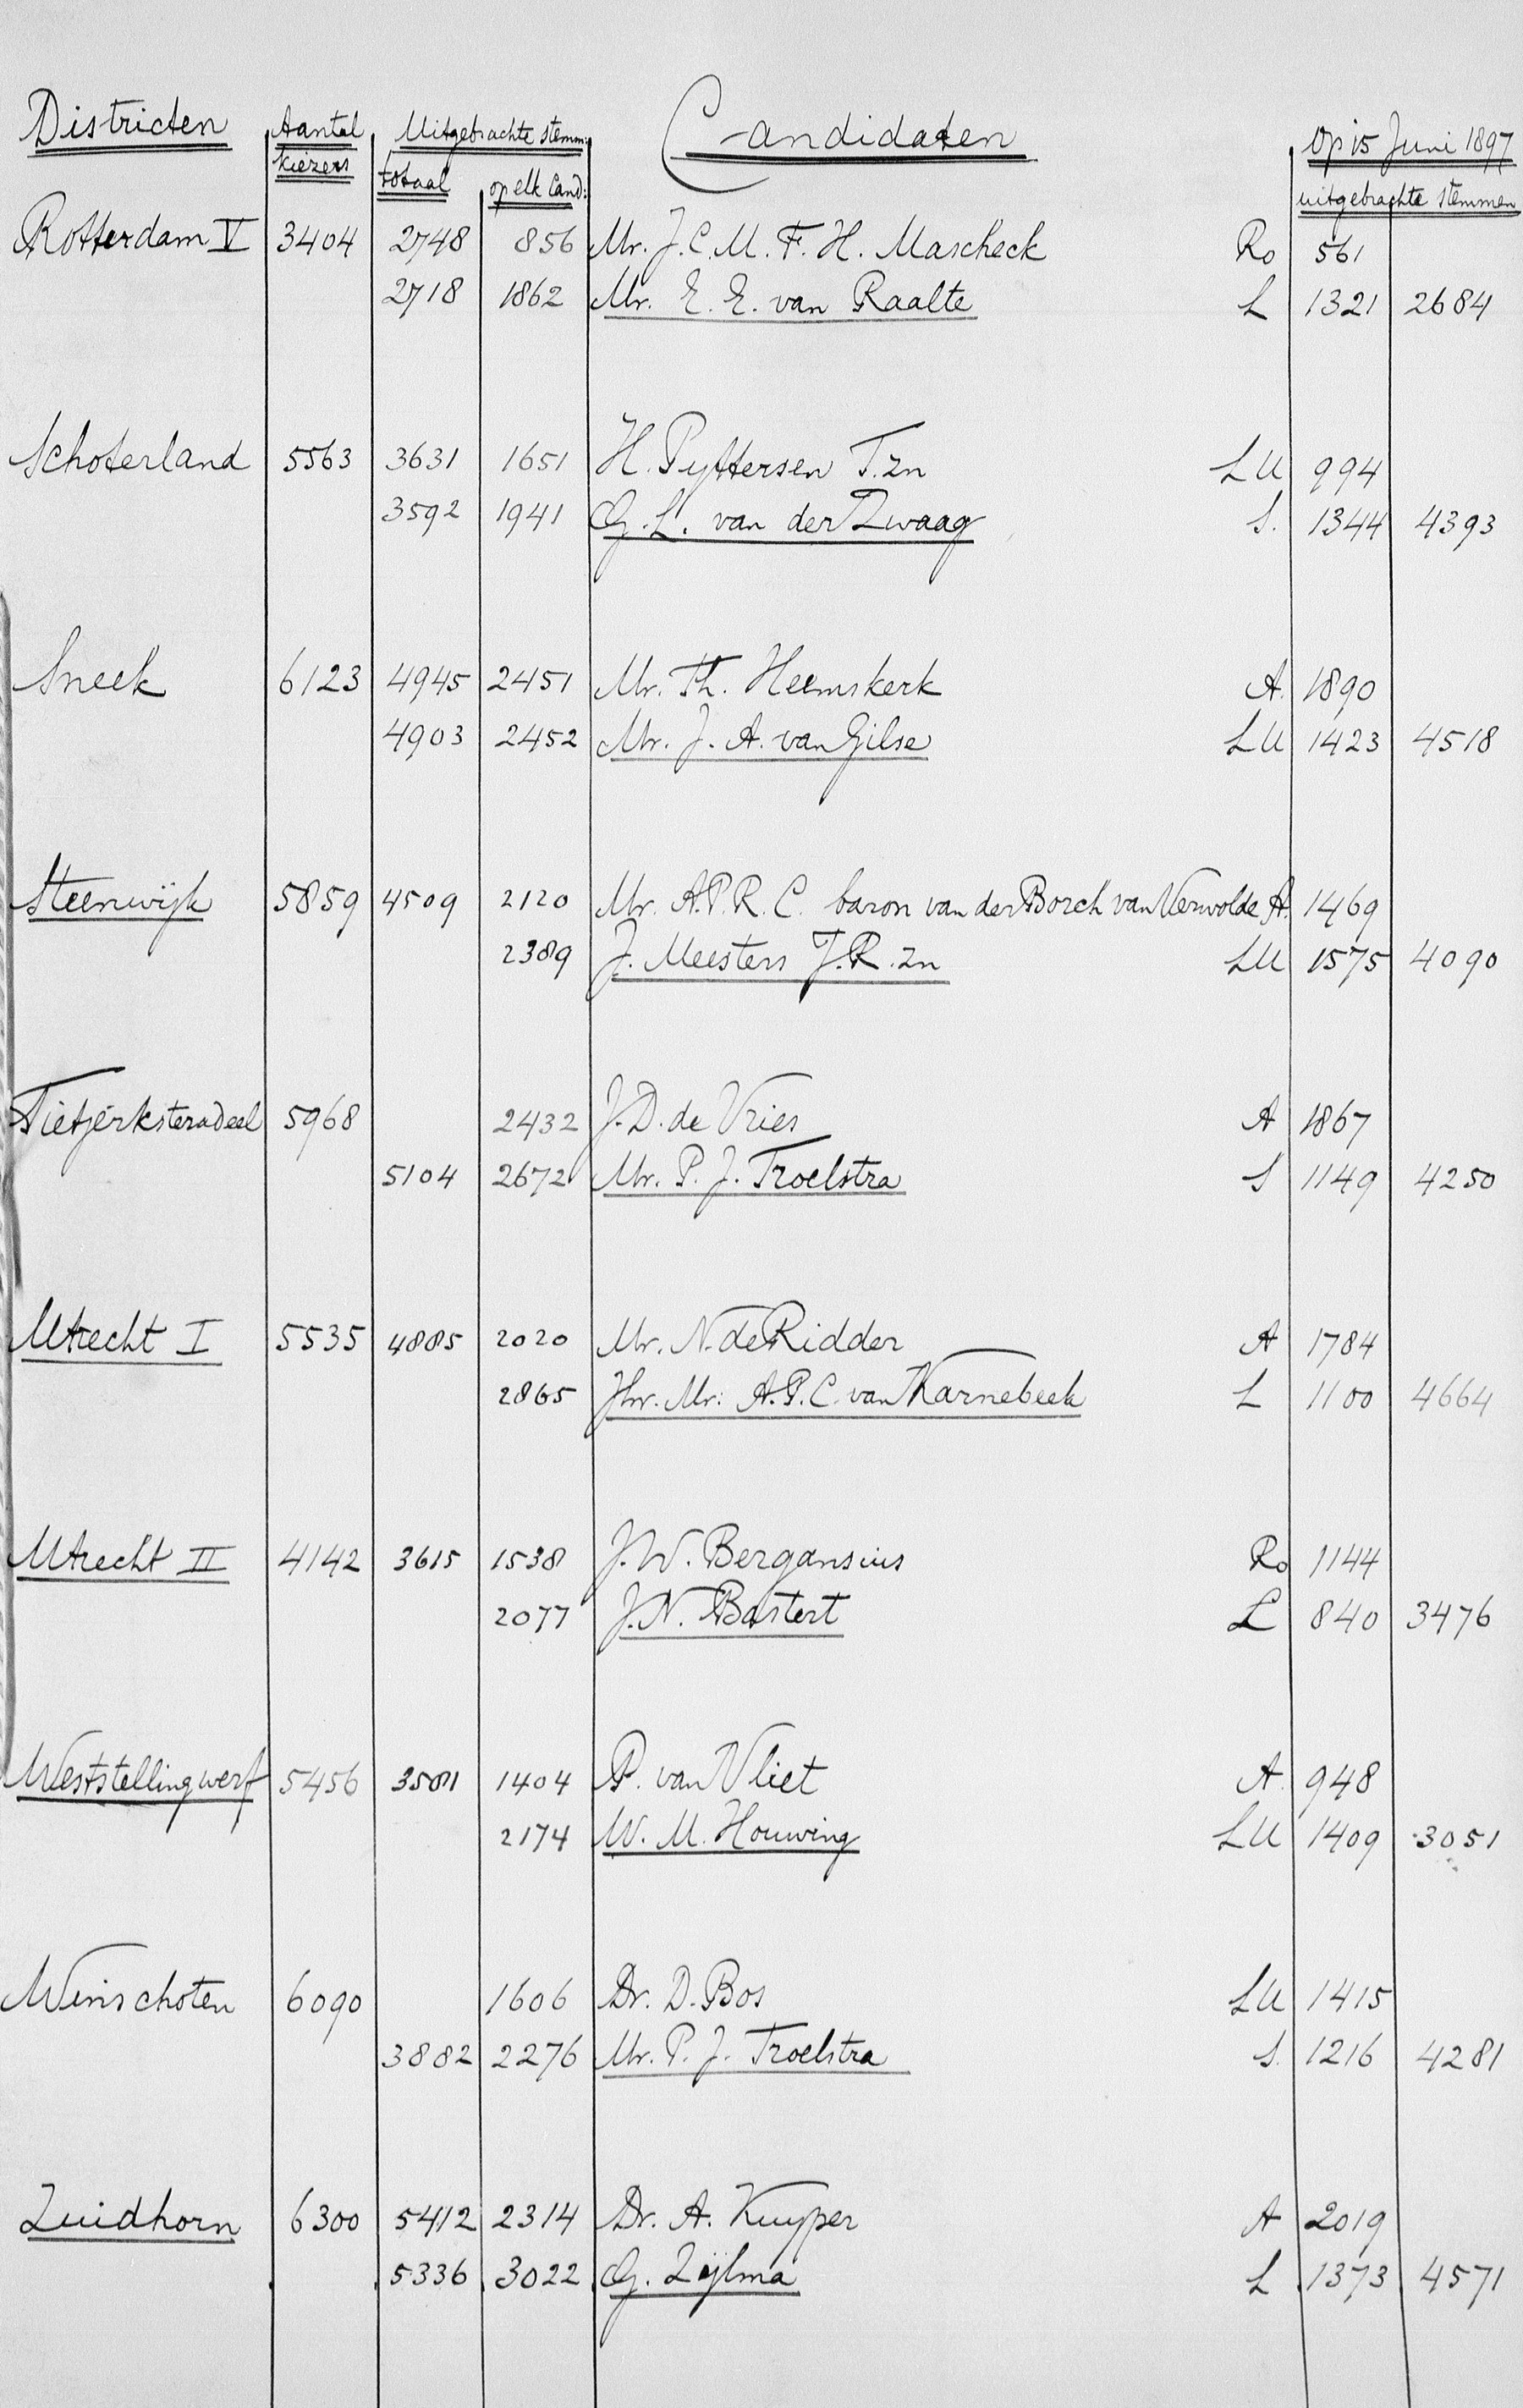 Districten Aantal Uitgebrachte stemm: Candidaten Op 15 Juni 1897
kiezers totaal op elk Cand: uitgebrachte stemmen
Rotterdam V 3404 2748 856 Mr. J. C. M. F. H. Mascheck Ro 561
2718 1862 Mr. E. E. van Raalte L 1321 2684
Schoterland 5563 3631 1651 H. Pyttersen T.zn LU 994
3592 1941 G. L. van der Zwaag S. 1344 4393
Sneek 6123 4945 2451 Mr. Th. Heemskerk A. 1890
4903 2452 Mr. J. A. van Gilse LU 1423 4518
Steenwijk 5859 4509 2120 Mr. A. P. R. C. baron van der Borch van Verwolde A. 1469
2389 J. Meesters J. R. zn LU 1575 4090
Tietjerksteradeel 5968 2432 J. D. de Vries A 1867
5104 2672 Mr. P. J. Troelstra S 1149 4250
Utrecht I 5535 4885 2020 Mr. N. de Ridder A 1784
2865 Jhr. Mr: A. P. C. van Karnebeek L 1100 4664
Utrecht II 4142 3615 1538 J. W. Bergansius Ro 1144
2077 J. N. Bastert L 840 3476
Weststellingwerf 5456 1404 P. van Vliet A. 948
2174 W. M. Houwing LU 1409 3051
Winschoten 6090 1606 Dr. D. Bos LU 1415
3882 2276 Mr. P. J. Troelstra S. 1216 4281
Zuidhorn 6300 5412 2314 Dr. A. Kuyper A 2019
5336 3022 G. Zijlma L 1373 4571